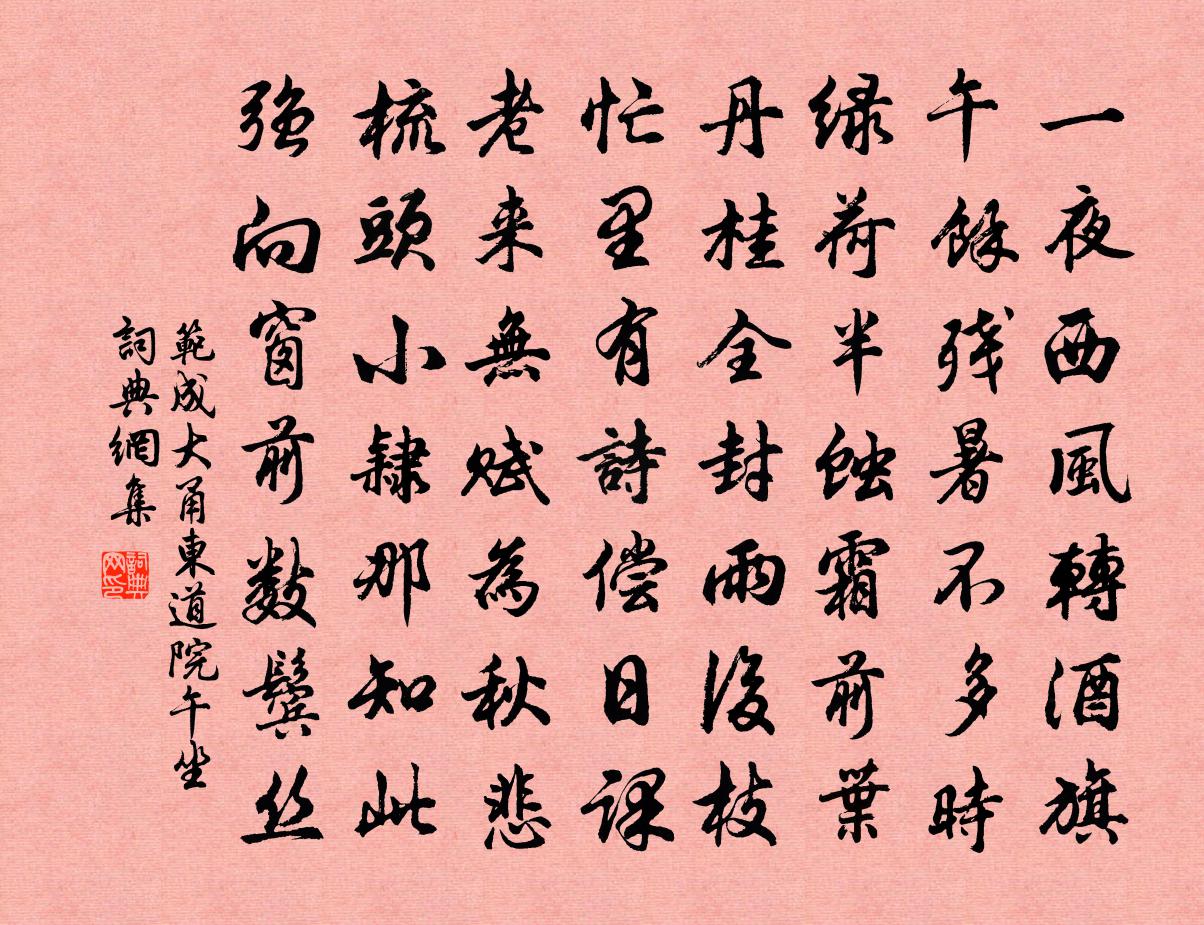 一夜西風轉酒旗
午餘残暑不多時
緑荷半蝕霜前葉
丹桂全封雨後枝
忙里有詩償日課
老来無賦為秋悲
梳頭小隸那知此
強向窗前數鬓丝
範成大甬東道院午坐
詞典網集
詞典网印